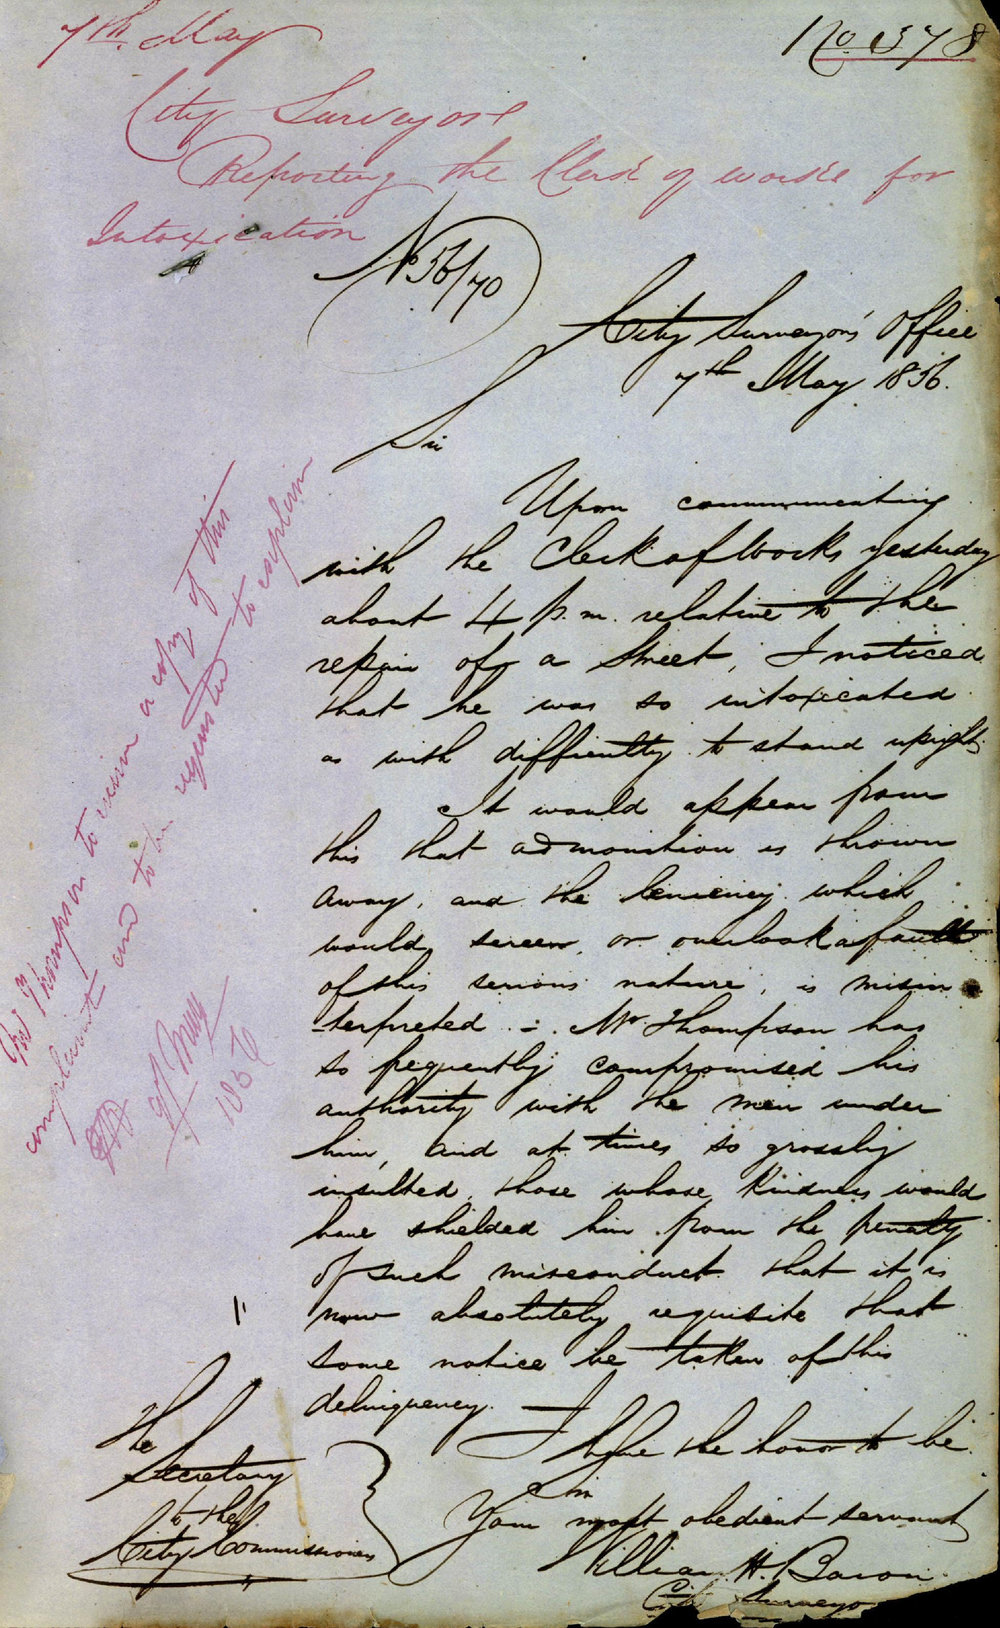 7th. May
No 378
City Surveyor
Reporting the Clerk of works for
Intoxication
No 56/70
City Surveyor's Office
7th May 1856.
Sir
Upon communicating
with the Clerk of Works yesterday
about 4 p.m. relative to the
repair of a Street, I noticed
that he was so intoxicated
as with difficulty to stand upright.
It would appear from
this that admonition is thrown
away, and the leniency which
would screen or overlook a fault
of this serious nature, is misin
-terpreted :- Mr Thompson has
so frequently compromised his
authority with the men under
him, and at times so grossly
insulted those whose kindness would
have shielded him from the penalty
of such misconduct that it is
now absolutely requisite that
some notice be taken of this
delinquency. —
I have the honor to be
Sir
Your most obedient servant
William H. Baron
City Surveyo
The
Secretary
to the
City Commissioners
Mr Thompson to receive a copy of this
complaint and to be requested to explain
9/ May
1856